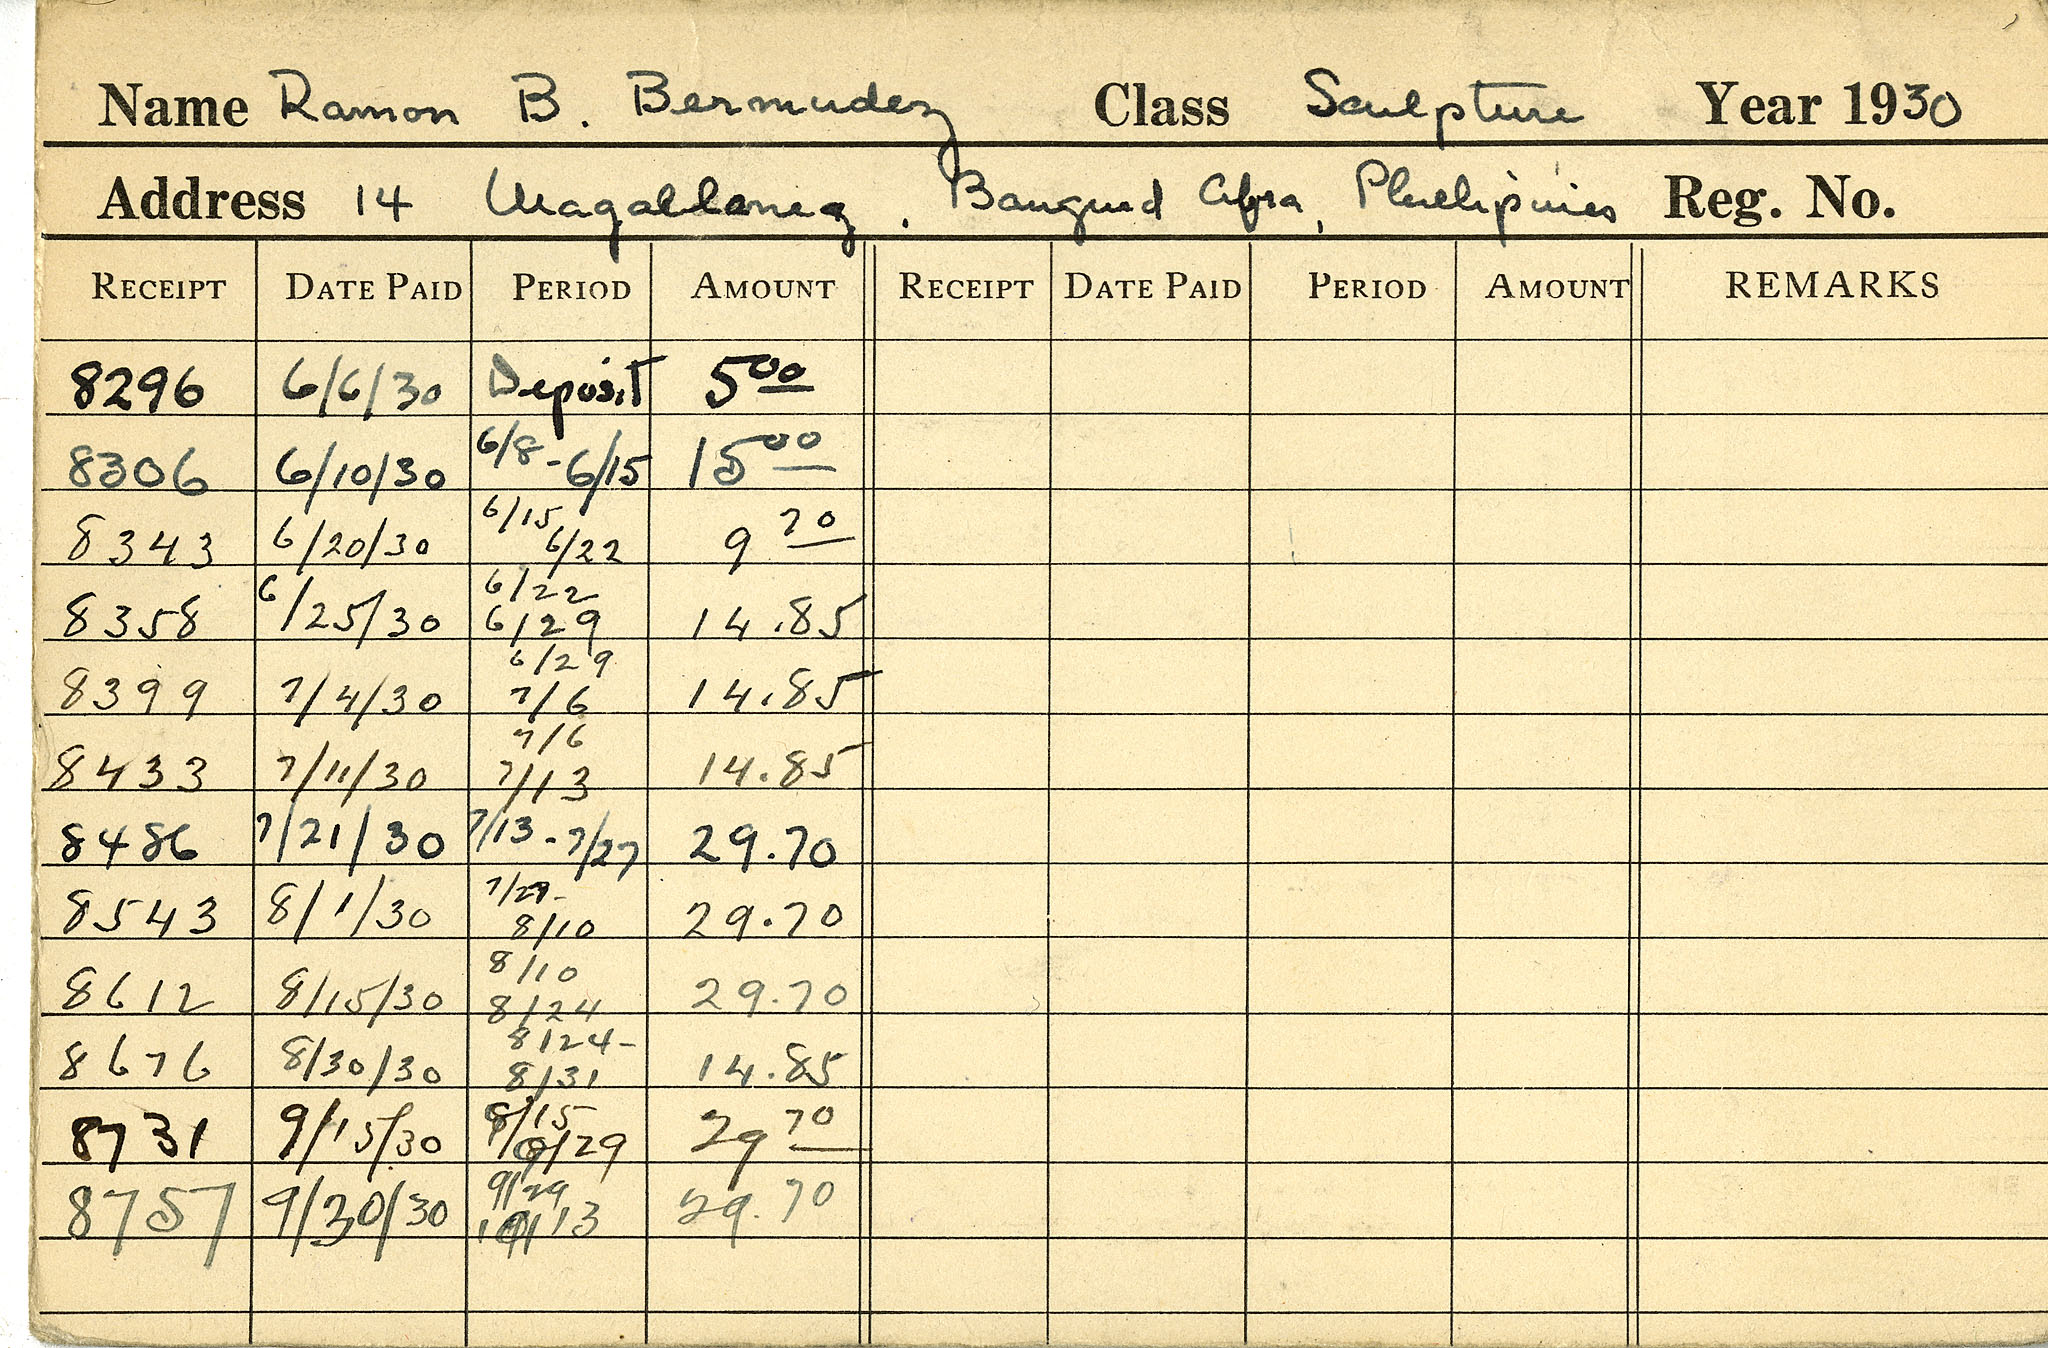 Name Ramon B. Bermudez Class Sculpture Year 1930
Address 14 Magallanez, Bangued Abra, Phillipines Reg. No.
RECEIPT DATE PAID PERIOD AMOUNT RECEIPT DATE PAID PERIOD AMOUNT REMARKS
8296 6/6/30 Deposit 5 00
8306 6/10/30 6/8 - 6/15 15 00
8343 6/20/30 6/15 6/22 9 70
8358 6/25/30 6/22 6/29 14.85
8399 7/4/30 6/29 7/6 14.85
8433 7/11/30 7/6 7/13 14.85
8486 7/21/30 7/13 - 7/27 29.70
8543 8/1/30 7/27 - 8/10 29.70
8612 8/15/30 8/10 8/24 29.70
8676 8/30/30 8/24 - 8/31 14.85
8731 9/15/30 /15 9/29 29 70
8757 9/30/30 9/29 10/13 29.70